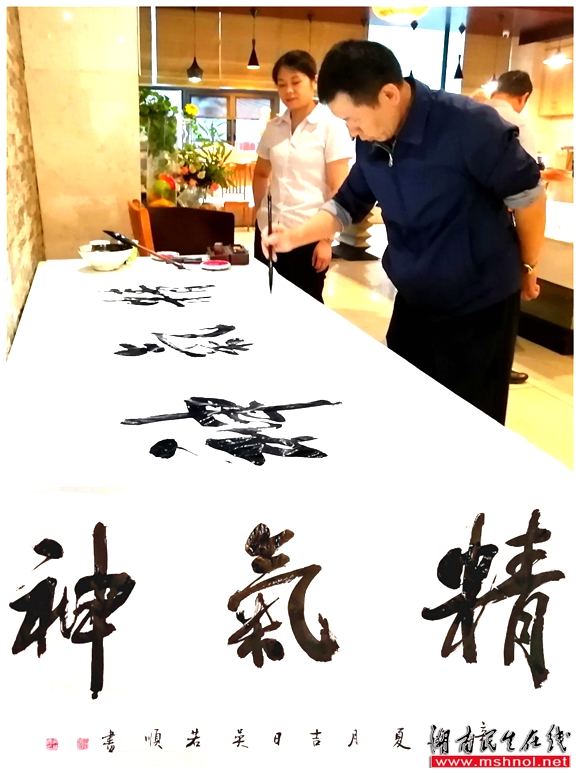 精氣神
夏月吉日吴若順書
湖南民生在线
www.mshnol.net